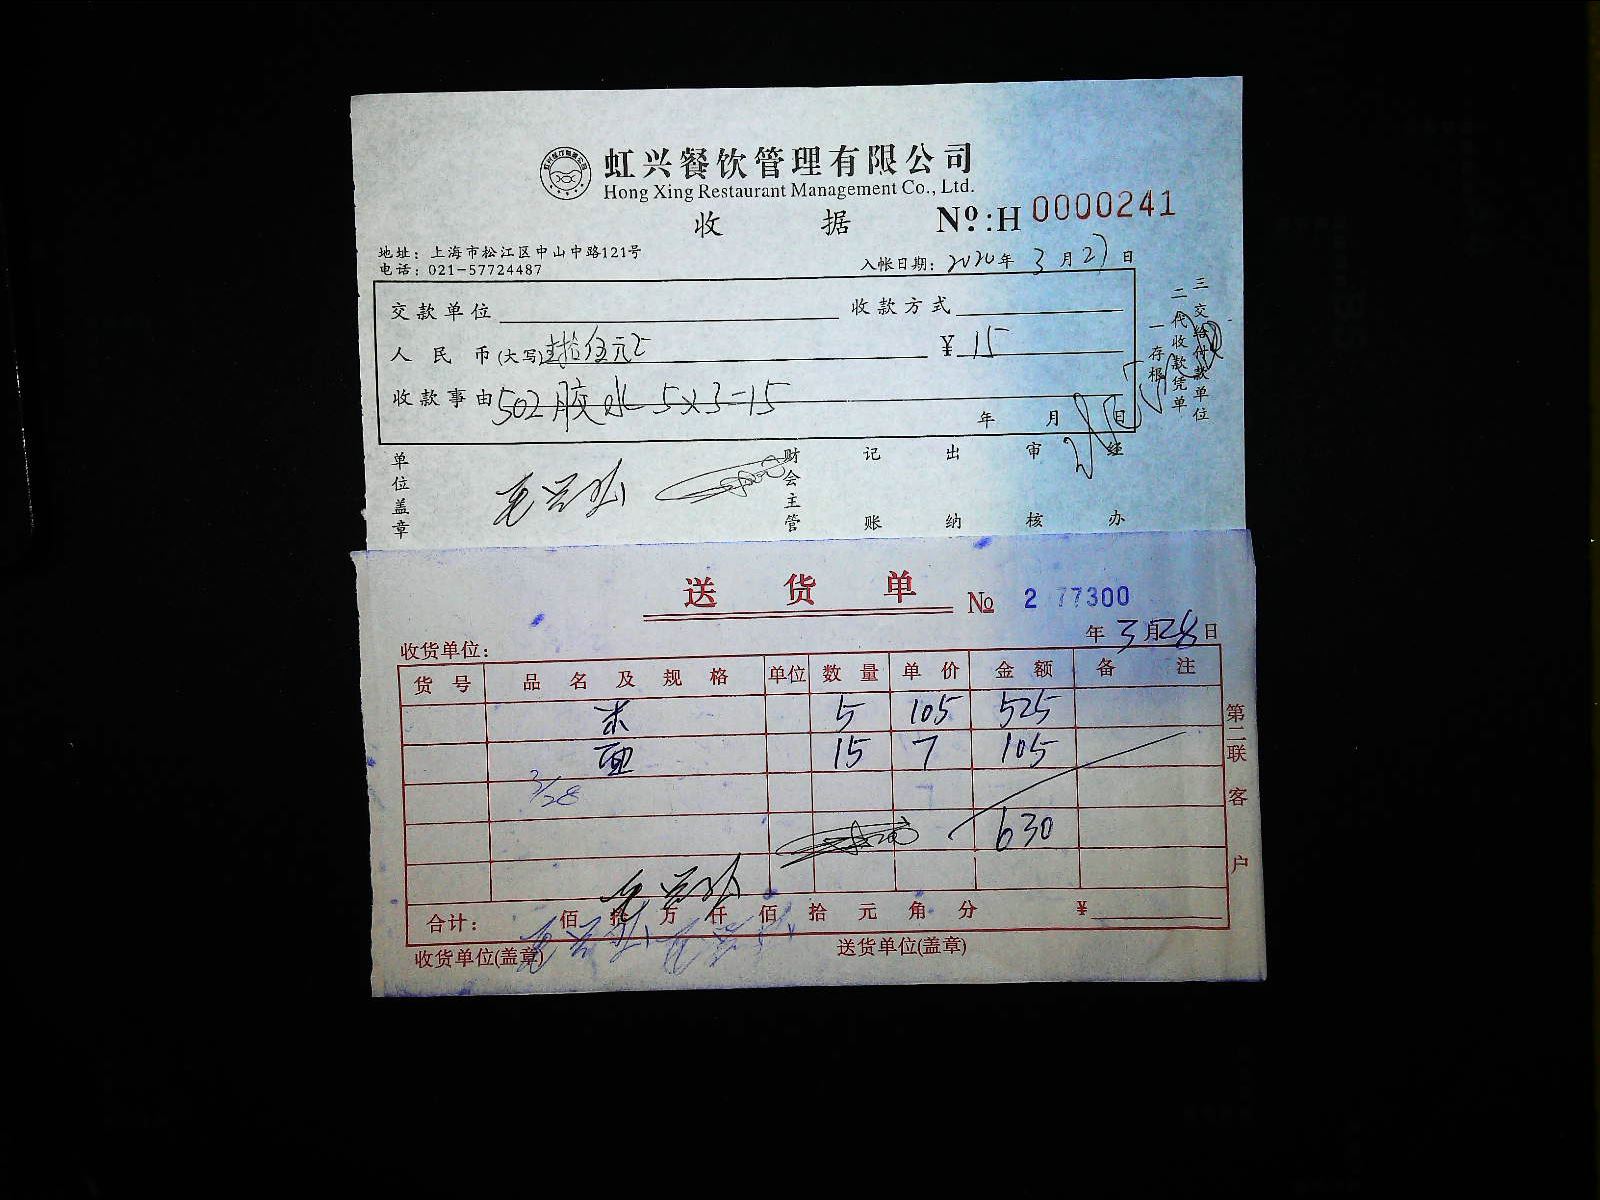 虹兴餐饮管理有限公司
Hong Xing Restaurant Management Co., Ltd.
收 据 Nº.:H 0000241
地址：上海市松江区中山中路121号
电话：021-57724487
入帐日期：2020年 3 月 27 日
交款单位 收款方式
人民币(大写)壹拾伍元 ¥ 15
收款事由 502胶水 5×3=15
年 月 日
一存根
二代收款凭单
三交给付款单位
单位盖章 财会主管 记账 出纳 审核 经办
送 货 单 № 2 77300
收货单位： 年 3 月 28 日
货号 品名及规格 单位 数量 单价 金额 备注
米 5 105 525
面 15 7 105
3/28
630
合计： 佰 拾 万 仟 佰 拾 元 角 分 ¥
收货单位(盖章) 送货单位(盖章)
第二联 客户